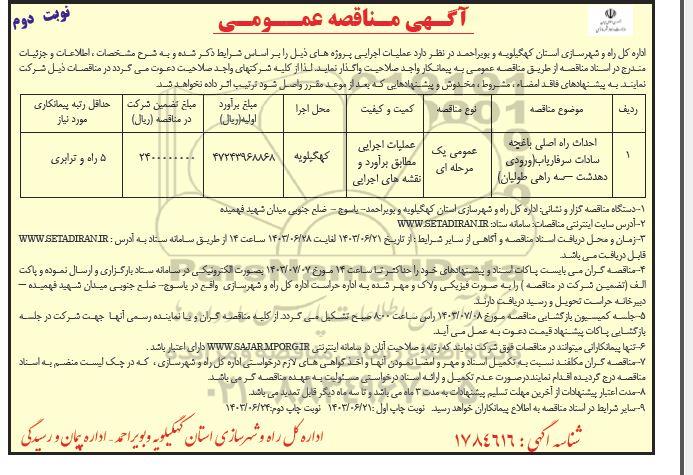 آگهی مناقصه عمومی
نوبت دوم
اداره کل راه و شهرسازی استان کهگیلویه و بویراحمد در نظر دارد عملیات اجرایی پروژه های ذیل را بر اساس شرایط ذکر شده و به شرح مشخصات ، اطلاعات و جزئیات
مندرج در اسناد مناقصه از طریق مناقصه عمومی به پیمانکار واجد صلاحیت واگذار نماید. لذا از کلیه شرکتهای واجد صلاحیت دعوت می گردد در مناقصات ذیل شرکت
نمایند. به پیشنهادهای فاقد امضاء ، مشروط ، مخدوش و پیشنهادهایی که بعد از موعد مقرر واصل شود ترتیب اثر داده نخواهد شد.
ردیف موضوع مناقصه نوع مناقصه کمیت و کیفیت محل اجرا مبلغ برآورد اولیه(ریال) مبلغ تضمین شرکت در مناقصه (ریال) حداقل رتبه پیمانکاری مورد نیاز
۱ احداث راه اصلی باغچه سادات سرفاریاب(ورودی دهدشت –سه راهی طولیان) عمومی یک مرحله ای عملیات اجرایی مطابق برآورد و نقشه های اجرایی کهگیلویه ۴۷۲۴۳۹۶۸۸۶۸ ۲۴۰۰۰۰۰۰۰۰ ۵ راه و ترابری
۱-دستگاه مناقصه گزار و نشانی: اداره کل راه و شهرسازی استان کهگیلویه و بویراحمد- یاسوج – ضلع جنوبی میدان شهید فهمیده
۲-آدرس سایت اینترنتی مناقصات: سامانه ستاد: WWW.SETADIRAN.IR
۳-زمان و محل دریافت اسناد مناقصه و آگاهی از سایر شرایط : از تاریخ ۱۴۰۳/۰۶/۲۱ لغایت ۱۴۰۳/۰۶/۲۸ ساعت ۱۴ از طریق سامانه ستاد به آدرس : WWW.SETADIRAN.IR
قابل دریافت می باشد.
۴-مناقصه گران می بایست پاکات اسناد و پیشنهادهای خود را حداکثر تا ساعت ۱۴ مورخ ۱۴۰۳/۰۷/۰۷ بصورت الکترونیکی در سامانه ستاد بارگزاری و ارسال نموده و پاکت
الف (تضمین شرکت در مناقصه ) را به صورت فیزیکی ولاک و مهر شده به اداره حراست اداره کل راه و شهرسازی واقع در یاسوج– ضلع جنوبی میدان شهید فهمیده –
دبیرخانه حراست تحویل و رسید دریافت دارند.
۵-جلسه کمیسیون بازگشایی مناقصه مورخ ۱۴۰۳/۰۷/۰۸ راس ساعت ۸:۰۰ صبح تشکیل می گردد. از کلیه مناقصه گران و یا نماینده رسمی آنها جهت شرکت در جلسه
بازگشایی پاکات پیشنهاد قیمت دعوت به عمل می آید.
۶-تنها پیمانکارانی میتوانند در مناقصات فوق شرکت نمایند که رتبه و صلاحیت آنان در سامانه اینترنتی WWW.SAJAR.MPORG.IR دارای اعتبار باشد .
۷-مناقصه گران مکلفند نسبت به تکمیل اسناد و مهر و امضا نمودن آنها و اخذ گواهی های لازم درخواستی اداره کل راه و شهرسازی ، که در چک لیست منضم به اسناد
مناقصه درج گردیده اقدام نمایند.درصورت عدم تکمیل و ارائه اسناد درخواستی مسئولیت به عهده مناقصه گر می باشد.
۸-مدت اعتبار پیشنهادات از آخرین مهلت تسلیم پیشنهادات به مدت ۳ ماه می باشد و تا سه ماه دیگر قابل تمدید می باشد.
۹-سایر شرایط در اسناد مناقصه به اطلاع پیمانکاران خواهد رسید. نوبت چاپ اول :۱۴۰۳/۰۶/۲۱ نوبت چاپ دوم:۱۴۰۳/۰۶/۲۴
شناسه آگهی : ۱۷۸۴۶۱۶ اداره کل راه و شهرسازی استان کهگیلویه و بویراحمد - اداره پیمان و رسیدگی